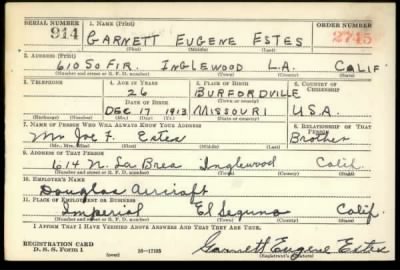 SERIAL NUMBER 1. NAME (Print) ORDER NUMBER
914 GARNETT EUGENE ESTES 2745
(First) (Middle) (Last)
2. ADDRESS (Print)
610 SO FIR. INGLEWOOD L.A. CALIF
(Number and street or R. F. D. number) (Town) (County) (State)
3. TELEPHONE 4. AGE IN YEARS 5. PLACE OF BIRTH 6. COUNTRY OF CITIZENSHIP
26 BURFORDVILLE
DATE OF BIRTH (Town or county)
DEC 17 1913 MISSOURI U.S.A.
(Exchange) (Number) (Mo.) (Day) (Yr.) (State or country)
7. NAME OF PERSON WHO WILL ALWAYS KNOW YOUR ADDRESS 8. RELATIONSHIP OF THAT PERSON
Mr Joe F. Estes Brother
(Mr., Mrs., Miss) (First) (Middle) (Last)
9. ADDRESS OF THAT PERSON
614 N. La Brea Inglewood Calif.
(Number and street or R. F. D. number) (Town) (County) (State)
10. EMPLOYER'S NAME
Douglas Aircraft
11. PLACE OF EMPLOYMENT OR BUSINESS
Imperial El Seguna Calif.
(Number and street or R. F. D. number) (Town) (County) (State)
I AFFIRM THAT I HAVE VERIFIED ABOVE ANSWERS AND THAT THEY ARE TRUE.
REGISTRATION CARD
D. S. S. Form 1 16-17105 Garnett Eugene Estes
(over) (Registrant's signature)